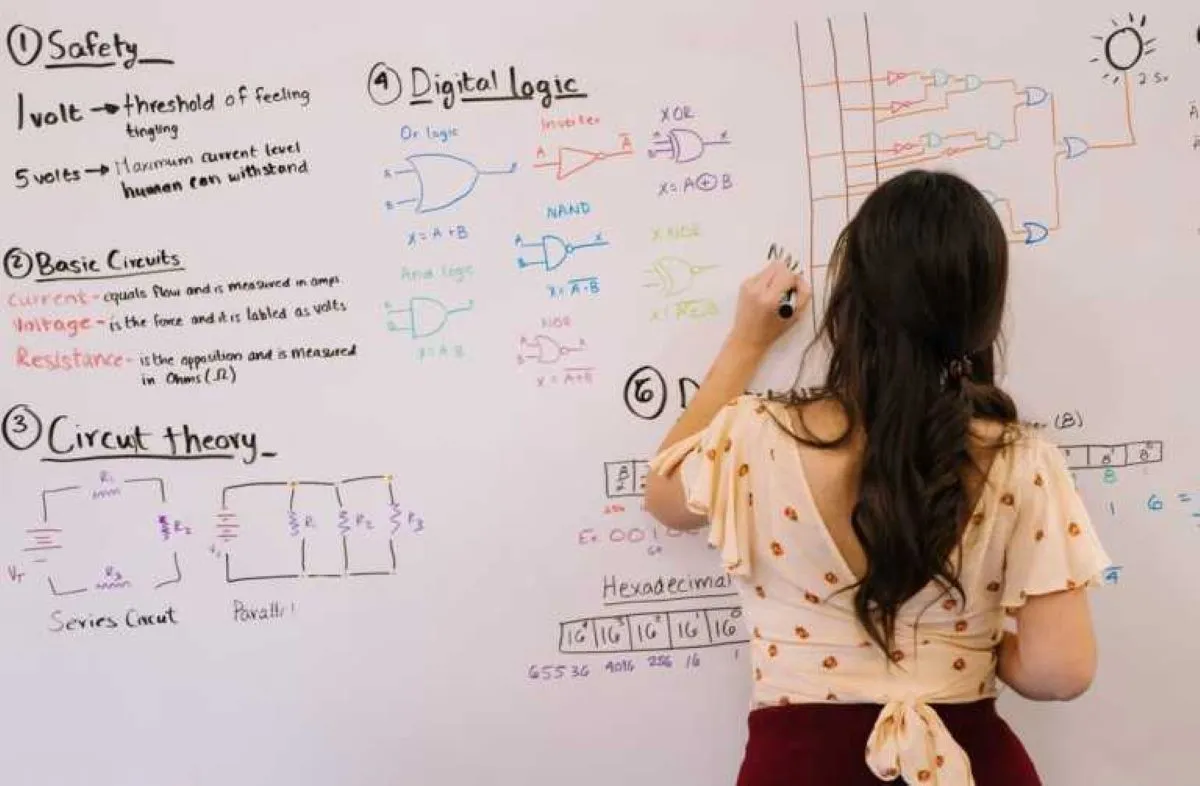 ① Safety
1 volt → threshold of feeling
tingling
5 volts → Maximum current level
human can withstand
② Basic Circuits
Current - equals flow and is measured in amps
Voltage - is the force and it is labled as volts
Resistance - is the opposition and is measured
in Ohms (Ω)
③ Circut theory
R₁
R₂
R₃
VT
Series Circut
R₁
R₂
R₃
④ Digital logic
Or logic
A
B
X = A + B
And logic
Inverter
A
A̅
NAND
A
B
X
X = A̅·̅B̅
NOR
A
B
X = A̅+̅B̅
XOR
X = A ⊕ B
X NOR
2.5v
⑤
(8)
8
1
6 =
Hexadecimal
16⁴ 16³ 16² 16¹ 16⁰
65536 4096 256 16 1